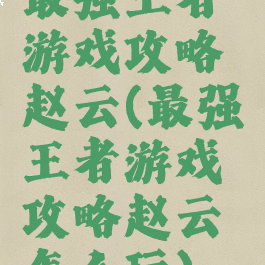 最强王者
游戏攻略
赵云(最强
王者游戏
攻略赵云
怎么玩)